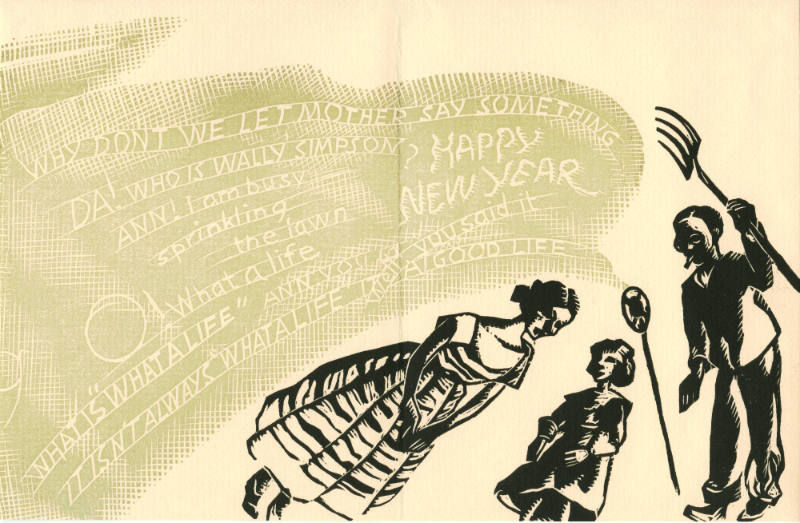 WHY DON'T WE LET MOTHER SAY SOMETHING
DA! WHO IS WALLY SIMPSON?
HAPPY
NEW YEAR
ANN! I am busy
sprinkling
the lawn
O! What a life
ANN, you said it
WHAT IS "WHAT A LIFE"
IT ISN'T ALWAYS "WHAT A LIFE" GOOD LIFE